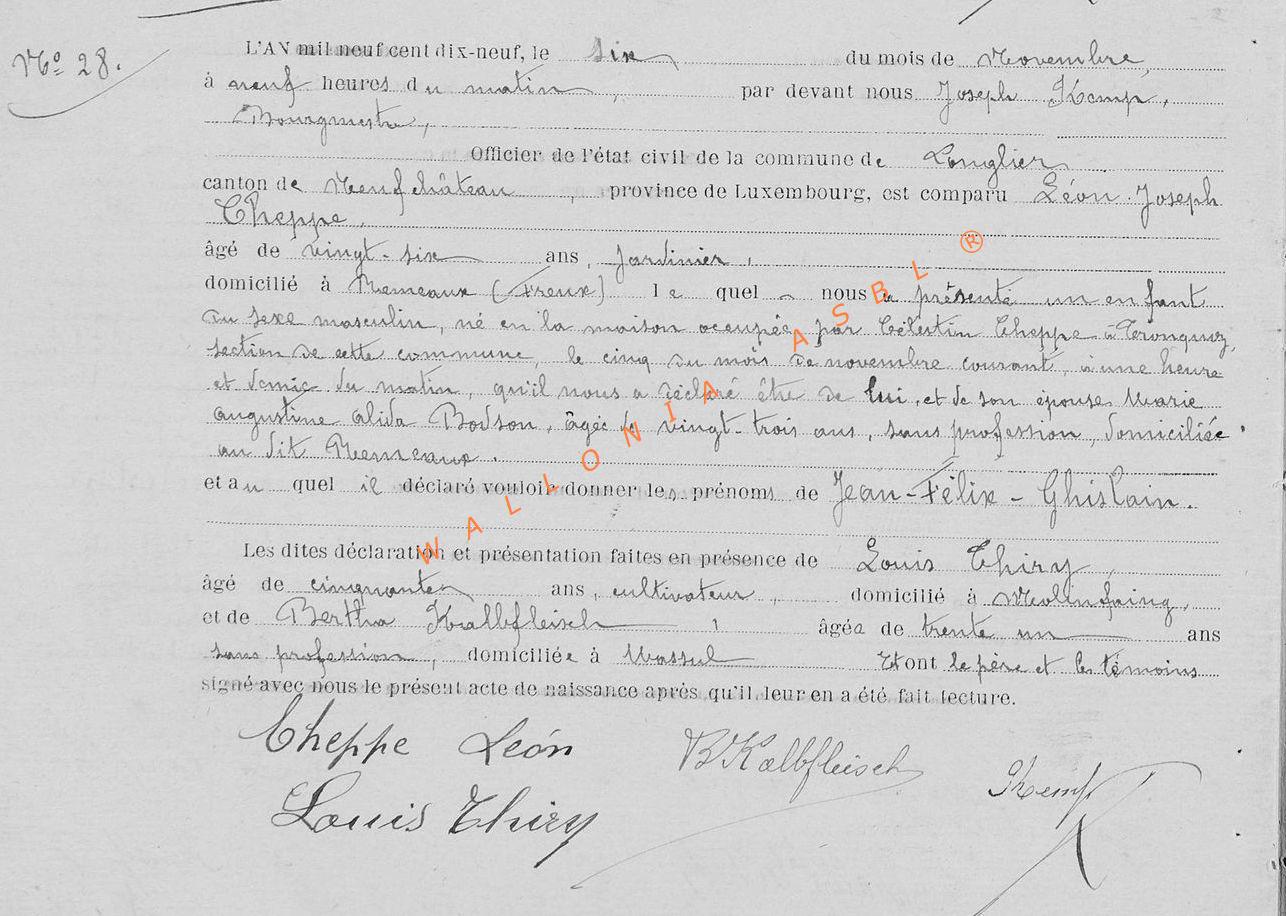 No 28.
L'AN mil neuf cent dix-neuf, le six du mois de Novembre,
à neuf heures du matin, par devant nous Joseph Kemp,
Bourgmestre,
Officier de l'état civil de la commune de Longlier
canton de Neufchâteau, province de Luxembourg, est comparu Léon Joseph
Cheppe,
âgé de vingt-six ans, Jardinier,
domicilié à Remeaux (Freux) lequel nous a présenté un enfant
du sexe masculin, né en la maison occupée par Célestin Cheppe à Tronquoy,
section de cette commune, le cinq du mois de novembre courant, à une heure
et demie du matin, qu'il nous a déclaré être de lui, et de son épouse Marie
Augustine Alida Bodson, âgée de vingt-trois ans, sans profession, domiciliée
au dit Remeaux.
et au quel il déclaré vouloir donner les prénoms de Jean-Félix-Ghislain.
Les dites déclaration et présentation faites en présence de Louis Thiry,
âgé de cinquante ans, cultivateur, domicilié à Molinfaing,
et de Bertha Kalbfleisch, âgée de trente un ans
sans profession, domiciliée à Massul Et ont le père et les témoins
signé avec nous le présent acte de naissance après qu'il leur en a été fait lecture.
Cheppe Léon B Kalbfleisch Kemp
Louis Thiry
WALLONIA ASBL ®